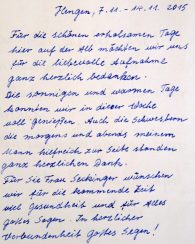 Hengen, 7.11. - 14.11. 2015
Für die schönen erholsamen Tage
hier auf der Alb möchten wir uns
für die liebevolle Aufnahme
ganz herzlich bedanken.
Die sonnigen und warmen Tage
konnten wir in dieser Woche
voll genießen. Auch die Schwestern
die morgens und abends meinem
Mann hilfreich zur Seite standen
ganz herzlichen Dank.
Für Sie Frau wünschen
wir für die kommende Zeit
viel Gesundheit und für Alles
Gottes Segen. In herzlicher
Verbundenheit Gottes Segen!